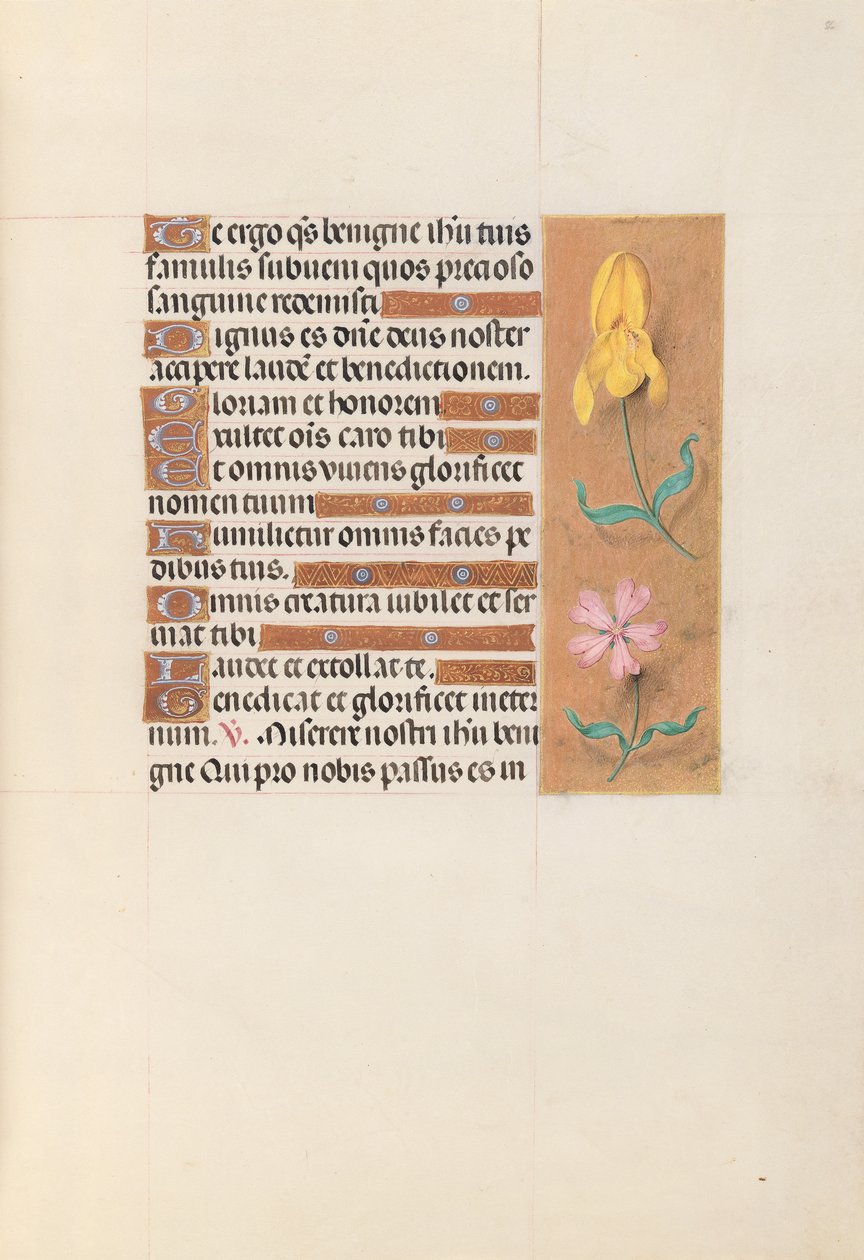 Te ergo q̄s benigne ih̄u tuis
famulis subueni quos precioso
sanguine redemisti
Dignus es dn̄e deus noster
accipere laudē et benedictionem.
Gloriam et honorem
Exultet oīs caro tibi
Et omnis viuens glorificet
nomen tuum
Humilietur omnis facies pe
dibus tuis.
Omnis creatura iubilet et ser
uiat tibi
Laudet et extollat te.
Benedicat et glorificet ineter
num. V̄. Miserere nostri ih̄u beni
gne Qui pro nobis passus es in